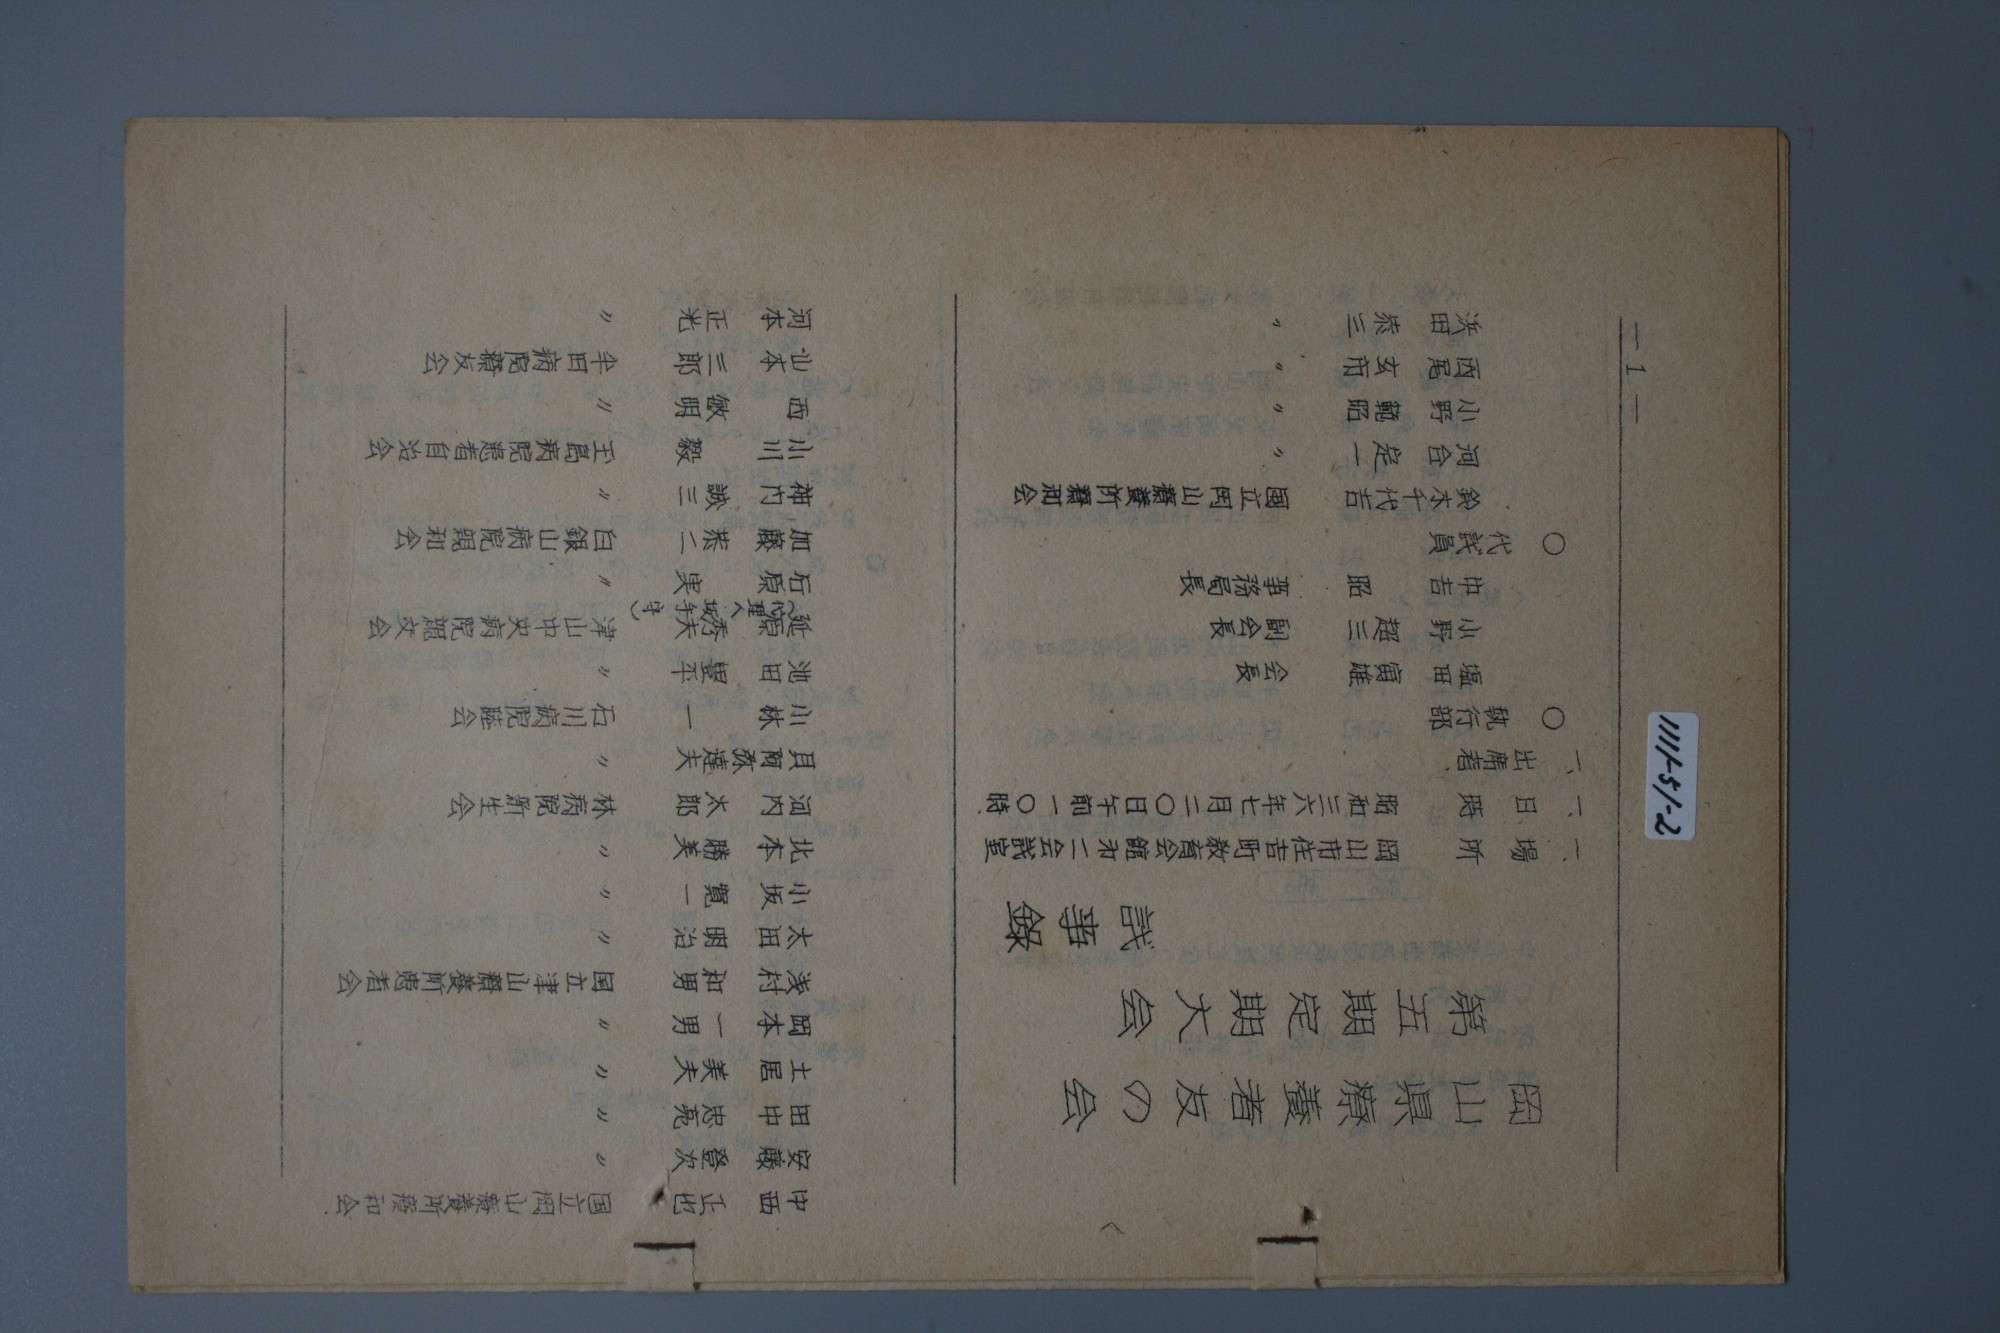 岡山県療養者友の会
第五期定期大会
議事録
一、場所 岡山市住吉町教育会館才二会議室
一、日時 昭和三六年七月二〇日午前一〇時
一、出席者
〇 執行部
塩田 寅雄 会長
小野 超三 副会長
中吉 昭 事務局長
〇 代議員
鈴木 千代吉 國立岡山療養所羣和会
河合 定一 〃
小野 範昭 〃
西尾 玄府 〃
浜田 泰三 〃
中西 正也 国立岡山療養所羣和会
安藤 登次 〃
田中 忠亮 〃
土居 美夫 〃
岡本 一男 〃
浅村 和男 国立津山療養所患者会
太田 明治 〃
小坂 寛一 〃
北本 勝美 〃
河内 太郎 林病院新生会
貝阿弥 達夫 〃
小林 一 石川病院睦会
池田 豊平 〃
延原 秀夫 津山中央病院親交会
石原 実 〃
加藤 恭二 白銀山病院親和会
神内 誠三 〃
小川 毅 玉島病院患者自治会
西 敏明 〃
山本 三郎 牟田病院療友会
河本 正光 〃
—1—
1111-51-2